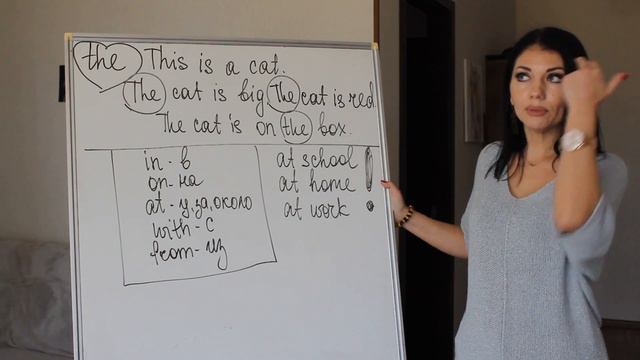 the This is a cat.
The cat is big. The cat is red.
The cat is on the box.
in - в
on - на
at - у, за, около
with - с
from - из
at school
at home
at work
!